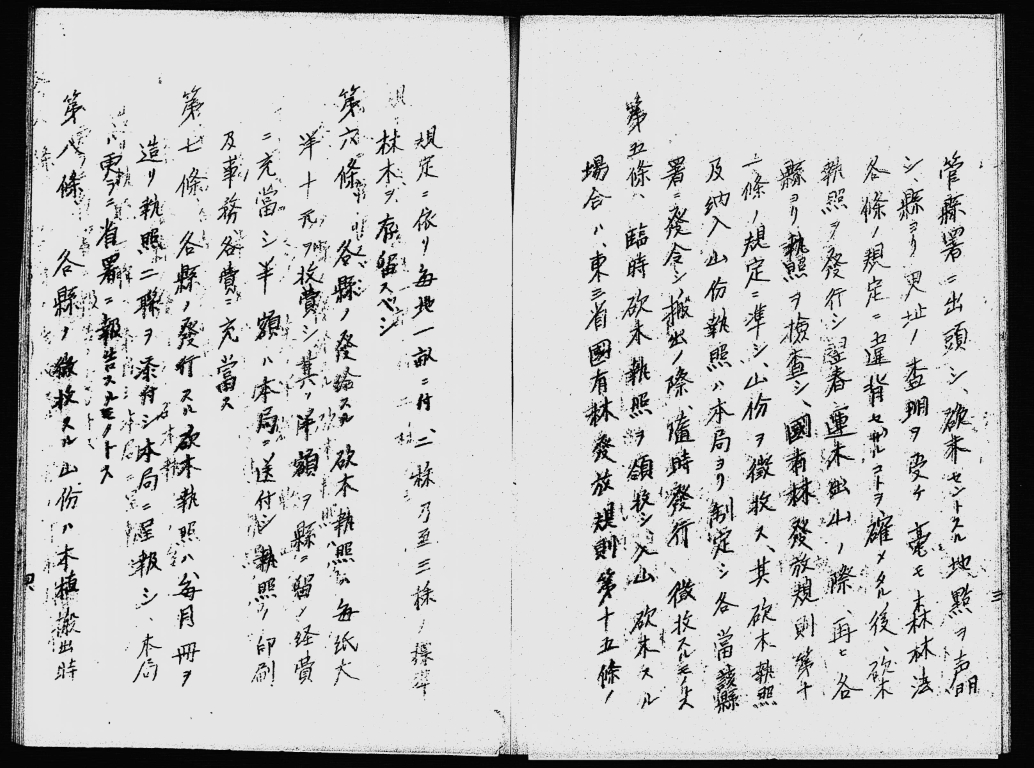 管縣署ニ出頭シ、砍木セントスル地點ヲ声明
シ、縣ヨリ界址ノ査明ヲ受ケ毫モ森林法
各條ノ規定ニ違背セザルコトヲ確メタル後、砍木
執照ヲ發行シ翌春運木出山ノ際、再ヒ各
縣ヨリ執照ヲ檢査シ、國有林發放規則第十
一條ノ規定ニ準シ、山份ヲ徴收ス、其砍木執照
及納入山份執照ハ本局ヨリ制定シ各當該縣
署ニ發令シ搬出ノ際、隨時發行、徴收スルモノトス
第五條、臨時砍木執照ヲ領收シ、入山砍木スル
場合ハ、東三省國有林發放規則第十五條ノ
三
規定ニ依リ毎地一畝ニ付、二株乃至三株ノ標準
林木ヲ存留スベシ
第六條、各縣ノ發給スル砍木執照ハ毎紙大
洋十元ヲ收費シ其ノ半額ヲ縣ニ留メ経費
ニ充當シ半額ハ本局ニ送付シ執照ノ印刷
及事務各費ニ充當ス
第七條、各縣ノ發行スル砍木執照ハ、毎月冊ヲ
造リ執照二聯ヲ添付シ本局ニ呈報シ、本局
ハ更ラニ省署ニ報告スルモノトス
第八條　各縣ノ徴收スル山份ハ木植搬出時
四